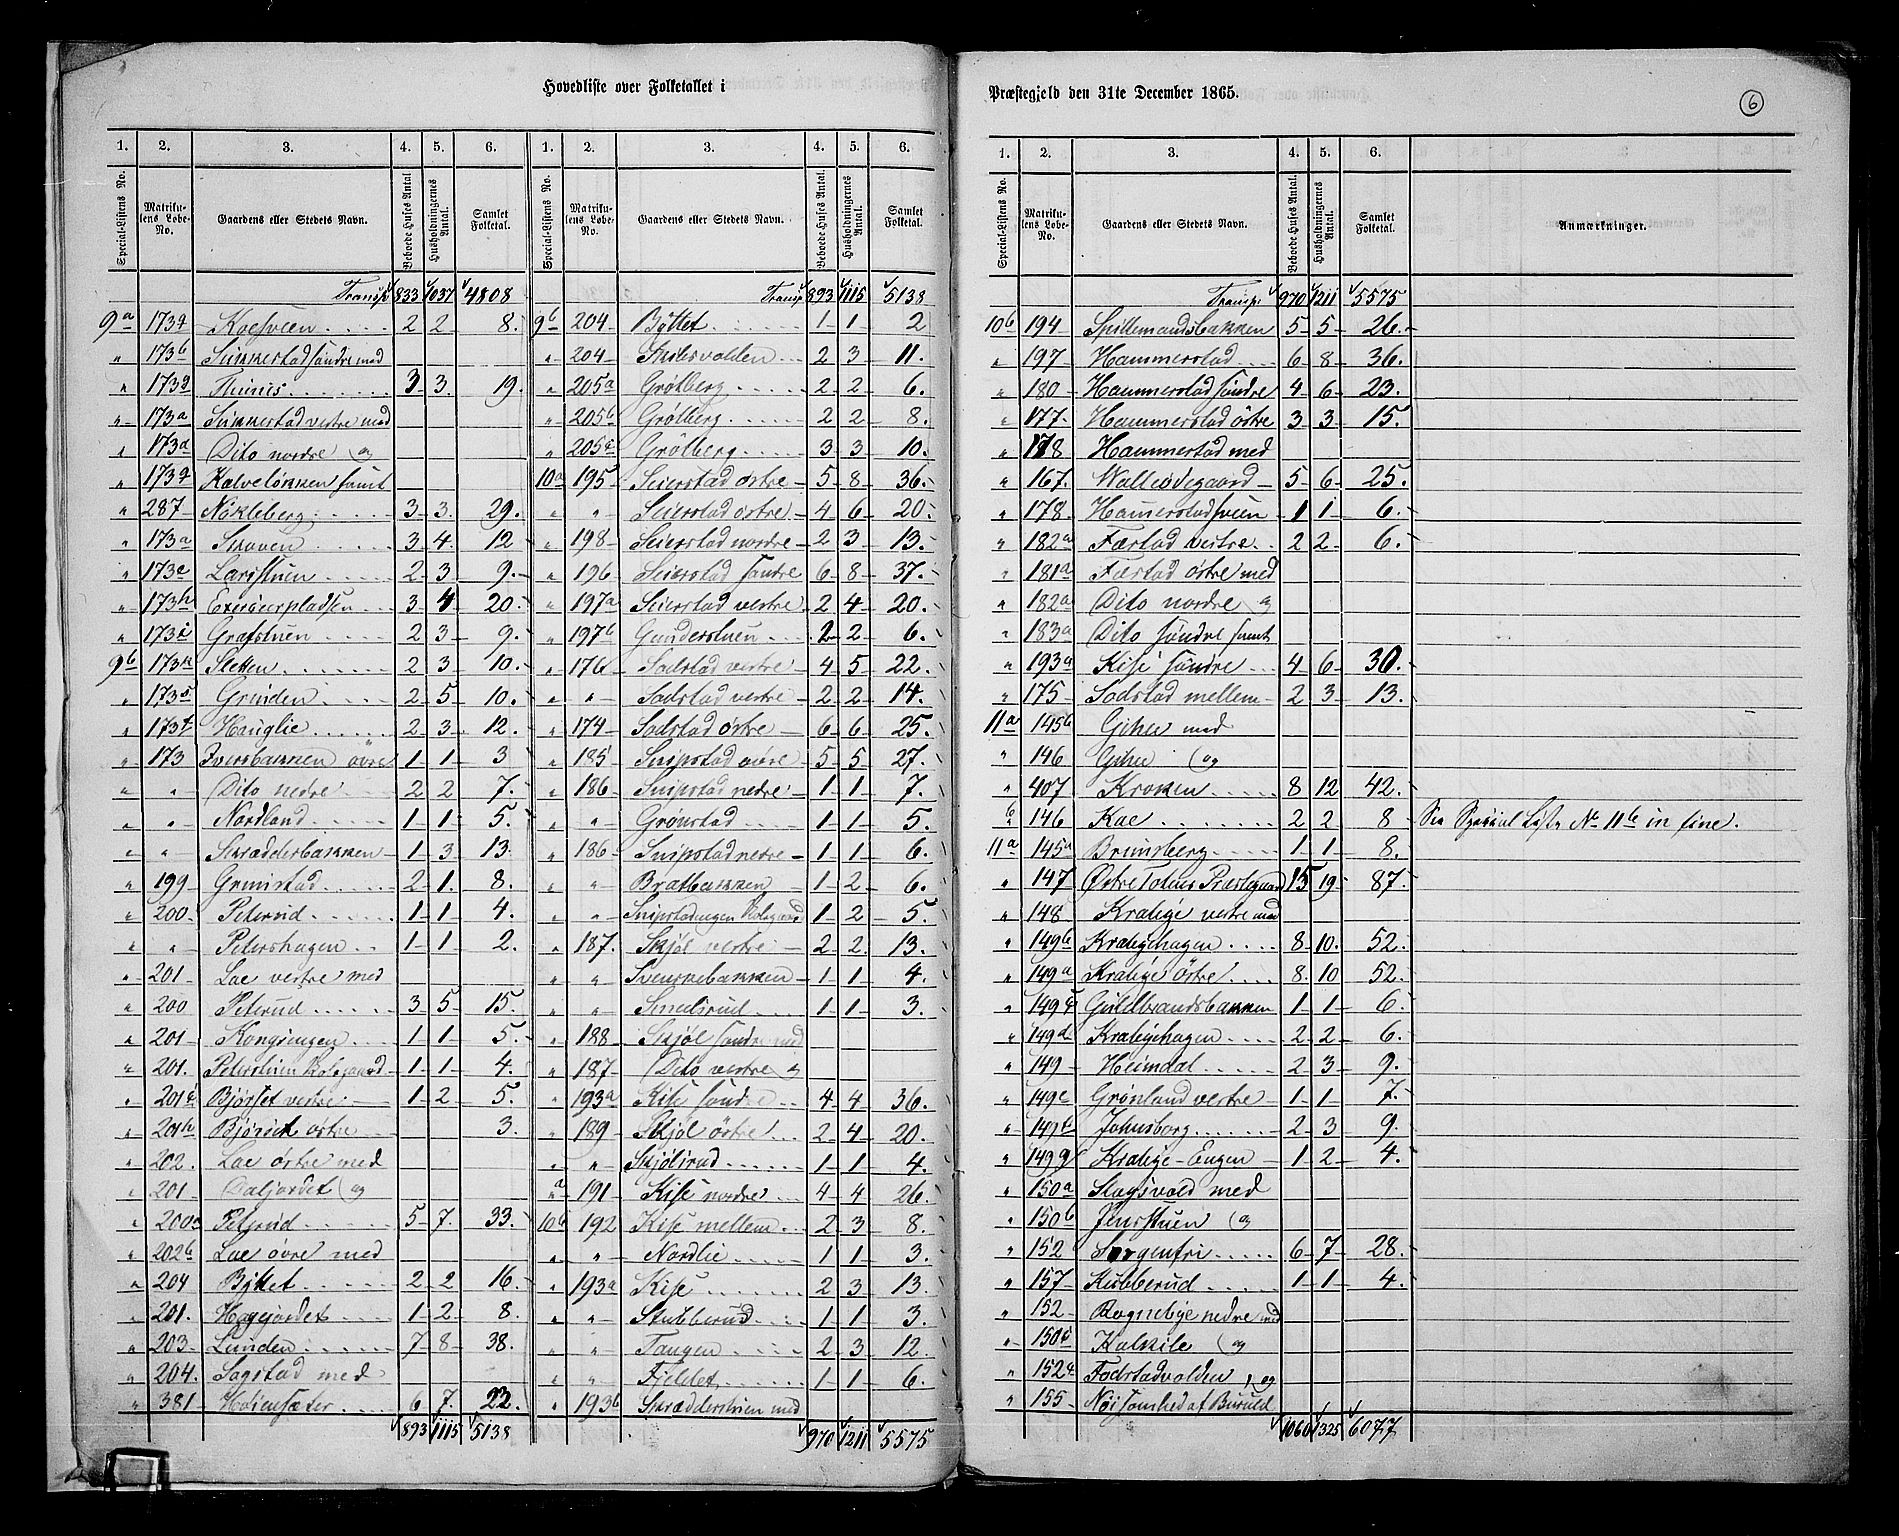 Hovedliste over Folketallet i
Præstegjeld den 31te December 1865.
6
1. 2. 3. 4. 5. 6. 1. 2. 3. 4. 5. 6.
Special-Listens No. Matrikulens Løbe-No. Gaardens eller Stedets Navn. Beboede Huses Antal Husholdningernes Antal. Samlet Folketal. Special-Listens No. Matrikulens Løbe-No. Gaardens eller Stedets Navn. Beboede Huses Antal. Husholdningernes Antal. Samlet Folketal.
Transp 833 1037 4808
9a 173 2 2 8.
" 173b søndre med
" 173 3 3 19.
" 173a vestre med
" 173a Dito nordre og
" 173 samt
" 287 Nøkleberg 3 3 29.
" 173a 3 4 12
" 173e Larsstuen 2 3 9.
" 173h Exerseerpladsen 3 4 20.
" 173i Grafstuen 2 3 9.
9b 173 Sletten 2 3 10.
" 173s Grinden 2 5 10.
" 173t Hauglie 2 3 12.
" 173 Iversbakken øvre 1 1 3
" " Dito nedre 2 2 7.
" " Nordland 1 1 5.
" " Skrædderbakken 1 3 13.
" 199 Grimstad 2 1 8.
" 200 Petersrud 1 1 4.
" " Petershagen 1 1 2.
" 201 Loe vestre med
" 200 Petersrud 3 5 15.
" 201 Kongsengen 1 1 5.
" 201. Peterstuen 1 1 4.
" 201 Bjørset vestre 1 2 5.
" 201h Bjørset østre 3.
" 202. Loe østre med
" 201 Daljordet og
" 200 5 7. 33.
" 202b Loe øvre med
" 204 Byttet 2 2 16.
" 201. Hagejordet 1 2 8.
" 203 Lunden 7 8 38.
" 204. Sagstad med
" 381 Høiensæter 6 7. 22.
893 1115 5138
Transp 893 1115 5138
9b 204 Byttet 1 1 2
" 204 2 3 11.
" 205a Grøtberg 2 2 6.
" 205b Grøtberg 2 2 8.
" 205c Grøtberg 3 3 10.
10a 195 Seierstad østre 5 8 36.
" " Seierstad østre 4 6 20.
" 198 Seierstad nordre 2 3 13.
" 196 Seierstad søndre 6 8 37.
" 197a Seierstad vestre 2 4 20.
" 197b Gunderstuen 2 2 6.
" 176 Sodstad vestre 4 5 22.
" " Sodstad vestre 2 2 14.
" 174 Sodstad østre 6 6 25.
" 185 Snipstad øvre 5 5 27.
" 186 Snipstad nedre 1 1 7.
" " Grønstad 1 1 5.
" 186 Snipstad nedre 1 1 6.
" " Bratbakken 1 2 6.
" " Snipstadengen 1 2 5.
" 187. Skjøl vestre 2 2 13.
" " Svenskebakken 1 1 4.
" " Smedsrud 1 1 3.
" 188 Skjøl søndre med
" 187 Dito vestre og
" 193a Kise søndre 4 4 36.
" 189 Skjøl østre 2 4 20.
" " Skjølsrud 1 1 4.
a 191 Kise nordre 4 4 26.
10b 192 Kise mellem 2 3 8.
" " Nordlie 1 1 3.
" 193a Kise 2 3 13.
" " Stubberud 1 1 3.
" " Tangen 2 3 12.
" " Fjeldet 1 1 6.
" 193b Skrædderstuen med
970 1211 5575
1. 2. 3. 4. 5. 6.
Special-Listens No. Matrikulens Løbe-No. Gaardens eller Stedets Navn. Beboede Huses Antal. Husholdningernes Antal. Samlet Folketal. Anmærkninger.
Transp 970 1211 5575
10b 194 Spillemandsbakken 5 5 26.
" 197 Hammerstad 6 8 36.
" 180 Hammerstad søndre 4 6 23.
" 177. Hammerstad østre 3 3 15.
" 178 Hammerstad med
" 167. 5 6 25.
" 178 Hamerstadsveen 1 1 6.
" 182a Færstad vestre 2 2 6.
" 181a Færstad østre med
" 182a Dito nordre og
" 183a Dito søndre samt
" 193a Kise søndre 4 6 30.
" 175 Sodstad mellem 2 3 13.
11a 145b Giher med
" 146 Giher og
" 407 Kroken 8 12 42.
b 146 Kae 2 2 8 Se Special Liste No 11b in fine.
11a 145a Brunsberg 1 1 8.
" 147 Østre Totens Præstegaard 15 19 87.
" 148 Kralige vestre med
" 149b Kraligehagen 8 10. 52.
" 149a Kralige østre 8. 10 52.
" 149 Guldbrandsbakken 1 1 6
" 149d Kraligehagen 2 2 6.
" 149 Heimdal 2 3 9.
" 149e Grønland vestre 1 1 7.
" 149 Johnsborg 2 3 9.
" 149g Kralige-Engen 1 2 4.
" 150a Stagsvold med
" 150b Jensstuen og
" 152 Sorgenfri 6 7 28.
" 157 Kubberud 1 1 4.
" 152 Rognebye nedre med
" 150 Kalkile og
" 152 Fodstadvolden, og
" 155 Nøisomhed af Bururld
1060 1325 6077